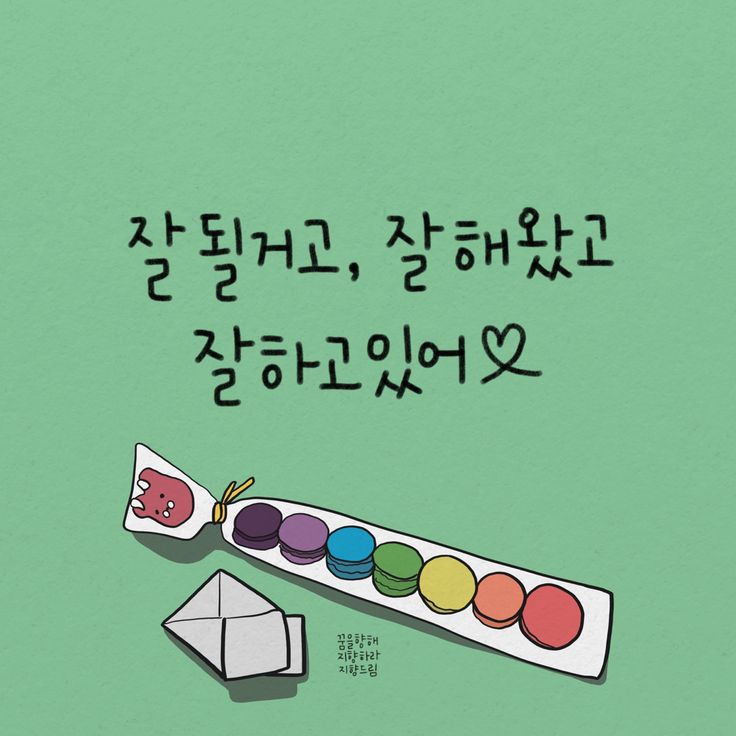 잘 될거고, 잘해왔고
잘하고있어♡
꿈을향해
지향하라
지향드림